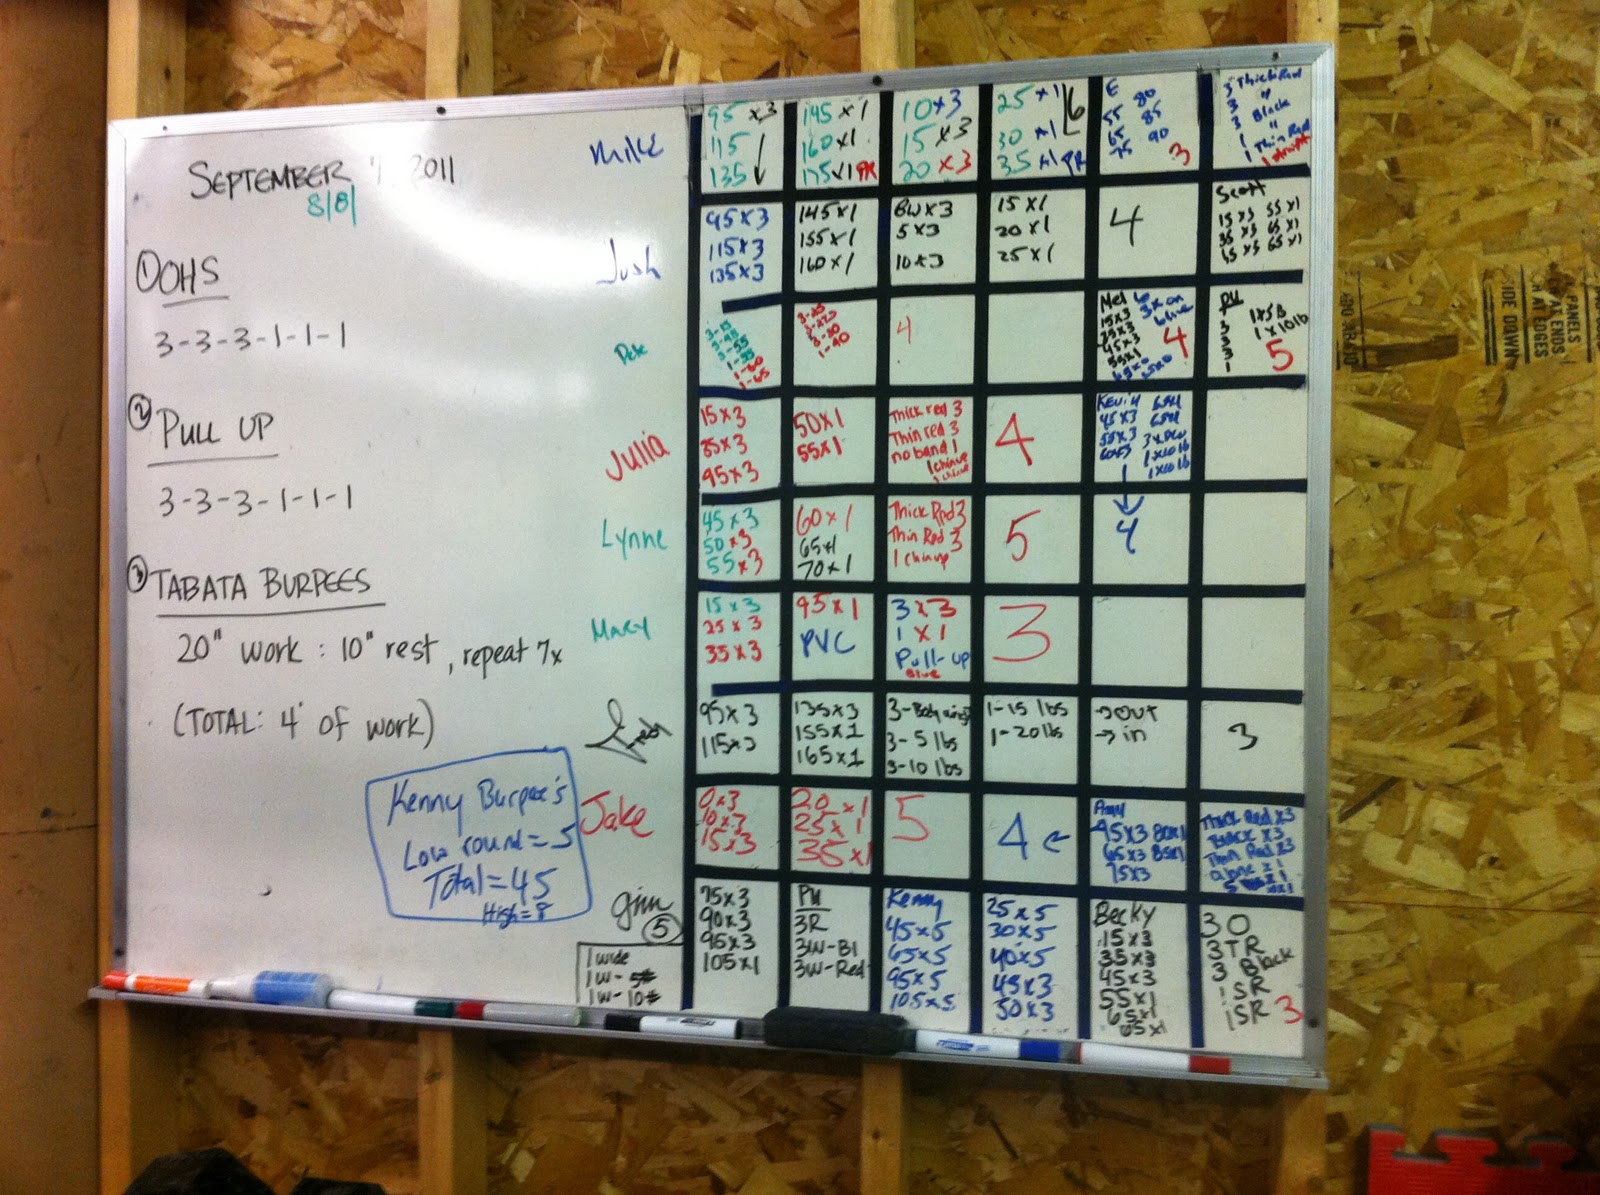 SEPTEMBER 4, 2011
8/8/
① OHS
3-3-3-1-1-1
② PULL UP
3-3-3-1-1-1
③ TABATA BURPEES
20" work : 10" rest, repeat 7x
(TOTAL: 4' of work)
Kenny Burpee's
Low round = 5
Total = 45
High = 8
Mike
95 x3
115
135
145 x 1
160x1
175x1 PR
10x3
15x3
20x3
25 x1
30 x1
35x1 PR
6
E
55 80
65 85
75 90
3
3 Thick Red
3 "
3 Black
1 "
1 Thin Red
1 straight
Josh
95x3
115x3
135x3
145x1
155x1
160x1
BWx3
5x3
10x3
15x1
20x1
25x1
4
Scott
15x3 55x1
35x3 65x1
45x3 65x1
1-60
1-65
1-90
4
Mel
15x3
25x3
45x3
55x1
4
PU
3
3
3
1
1x5B
1x10lb
5
Julia
15x3
85x3
95x3
50x1
55x1
Thick red 3
Thin red 3
no band 1
1 chinup
1 chinup
4
Kevin
45x3
55x3
1x10lb
1x10lb
4
Lynne
45x3
50x3
55x3
60x1
65x1
70x1
Thick Red 3
Thin Red 3
1 chinup
5
Mary
15x3
25x3
35x3
95x1
PVC
3x3
1x1
Pull-up
Blue
3
Fred
95x3
115x3
135x3
155x1
165x1
3-5 lbs
3-10 lbs
1-15 lbs
1-20lbs
→OUT
→in
3
Jake
0x3
10x3
15x3
20x1
25x1
35x1
5
4 ←
Amy
45x3 80x1
65x3 85x1
75x3
Thick Red x3
Black x3
Thin Red x3
Jim
⑤
1 wide
1w-5#
1w-10#
75x3
90x3
95x3
105x1
PU
3R
3W-Bl
3W-Red
Kenny
45x5
65x5
95x5
105x5
25x5
30x5
40x5
45x3
50x3
Becky
15x3
35x3
45x3
55x1
65x1
65x1
3 O
3TR
3 Black
1 SR
1SR 3
PANELS
ENDS
AT EDGES
SIDE DOWN